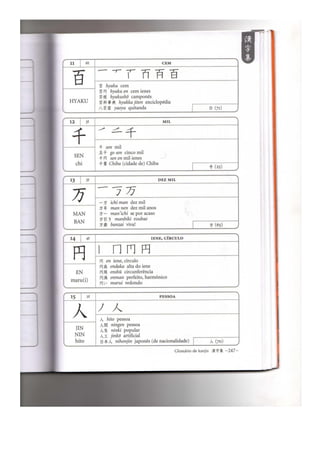 漢字集
11 CEM
百
HYAKU
百 hyaku cem
百円 hyaku en cem ienes
百姓 hyakushō camponês
百科事典 hyakka jiten enciclopédia
八百屋 yaoya quitanda
12 MIL
千
SEN
chi
千 sen mil
五千 go sen cinco mil
千円 sen en mil ienes
千葉 Chiba (cidade de) Chiba
13 DEZ MIL
万
MAN
BAN
一万 ichi man dez mil
万年 man nen dez mil anos
万一 man'ichi se por acaso
万引き manbiki roubar
万歳 banzai viva!
14 IENE, CÍRCULO
円
EN
maru(i)
円 en iene, círculo
円高 endaka alta do iene
円周 enshū circunferência
円満 enman perfeito, harmônico
円い marui redondo
15 PESSOA
人
JIN
NIN
hito
人 hito pessoa
人間 ningen pessoa
人気 ninki popular
人工 jinkō artificial
日本人 nihonjin japonês (de nacionalidade)
Glossário de kanjis 漢字集 -247-